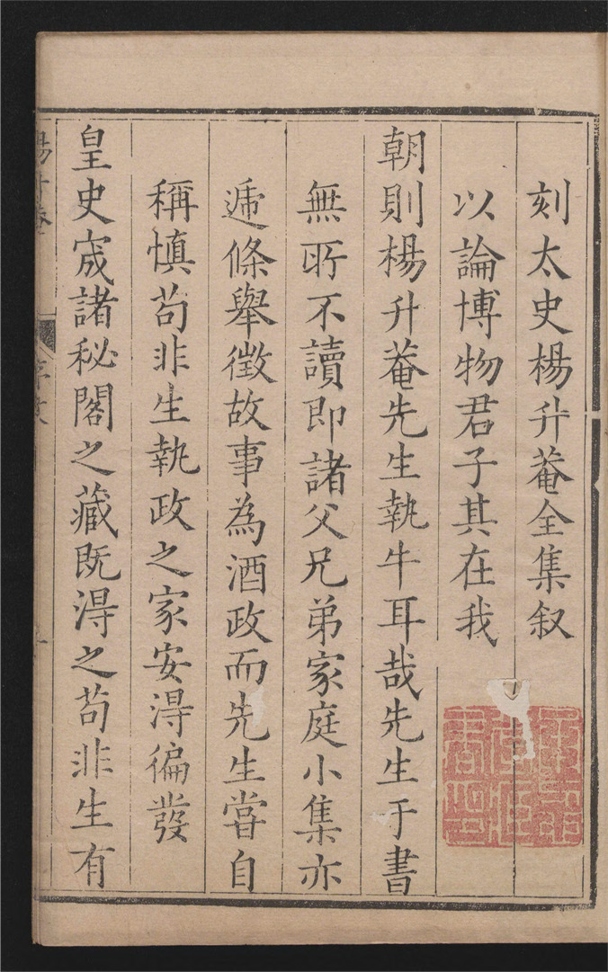 刻太史楊升菴全集叙
以論博物君子其在我
朝則楊升菴先生執牛耳哉先生于書
無所不讀即諸父兄弟家庭小集亦
遞條舉徵故事為酒政而先生嘗自
稱慎苟非生執政之家安得徧發
皇史宬諸秘閣之藏既得之苟非生有